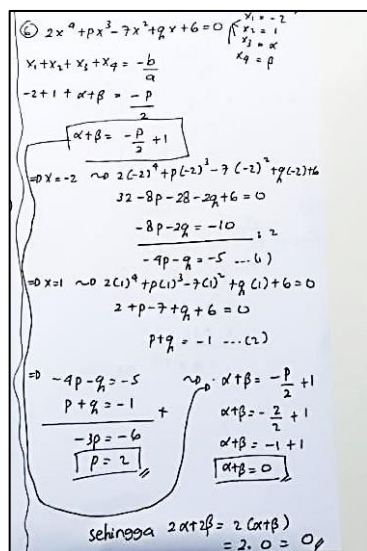 ⑥ 2x⁴ + px³ - 7x² + qx + 6 = 0
x₁ = -2
x₂ = 1
x₃ = α
x₄ = β
x₁ + x₂ + x₃ + x₄ = -b/a
-2 + 1 + α + β = -p/2
α + β = -p/2 + 1
⇒ x = -2 ~> 2(-2)⁴ + p(-2)³ - 7(-2)² + q(-2) + 6
32 - 8p - 28 - 2q + 6 = 0
-8p - 2q = -10
: 2
-4p - q = -5 ...(1)
⇒ x = 1 ~> 2(1)⁴ + p(1)³ - 7(1)² + q(1) + 6 = 0
2 + p - 7 + q + 6 = 0
p + q = -1 ...(2)
⇒ -4p - q = -5
p + q = -1
+
-3p = -6
p = 2
~> α + β = -p/2 + 1
α + β = -2/2 + 1
α + β = -1 + 1
α + β = 0
sehingga 2α + 2β = 2(α + β)
= 2 . 0 = 0